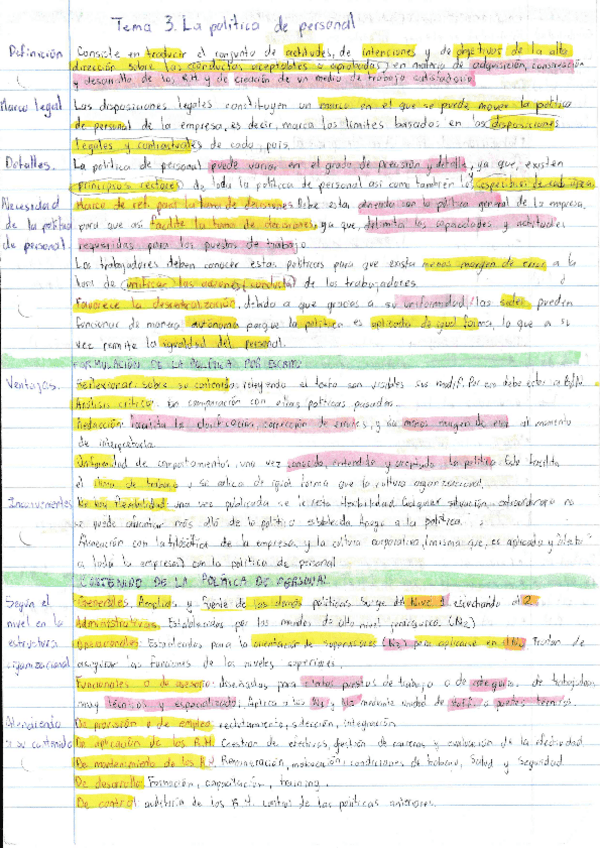 Tema 3. La política de personal
Definición Consiste en traducir el conjunto de actitudes, de intenciones y de objetivos de la alta
dirección sobre las conductas aceptables o aprobadas, en materia de adquisición, conservación
y desarrollo de los R.H. y de creación de un medio de trabajo satisfactorio
Marco legal Las disposiciones legales constituyen un marco en el que se puede mover la política
de personal de la empresa, es decir, marca los límites basados en las disposiciones
legales y contractuales de cada país.
Detalles. La política de personal puede variar en el grado de precisión y detalle, ya que, existen
principios rectores de toda la política de personal así como también los específicos de cada área.
Necesidad Marco de ref. para la toma de decisiones. Debe estar alineada con la política general de la empresa,
de la política para que así facilite la toma de decisiones, ya que, delimita las capacidades y actitudes
de personal. requeridas para los puestos de trabajo
Los trabajadores deben conocer estas políticas para que exista menos margen de error a la
hora de unificar las acciones (conducta) de los trabajadores.
Favorece la descentralización, debido a que gracias a su uniformidad, las sedes pueden
funcionar de manera autónoma porque la política es aplicada de igual forma, lo que a su
vez permite la igualdad del personal.
FORMULACIÓN DE LA POLÍTICA POR ESCRITO
Ventajas. Reflexionar sobre su contenido, releyendo el texto son visibles sus modif. Por eso debe estar a
Análisis crítico. En comparación con otras políticas pasadas.
Redacción: facilita la clasificación, corrección de errores, y da menos margen de error al momento
de interpretarla.
Uniformidad de comportamientos, una vez conocida, entendida y aceptada la política. Esto facilita
el clima de trabajo, se aplica de igual forma que la cultura organizacional.
Inconvenientes No hay flexibilidad. Una vez publicada se le resta flexibilidad. Cualquier situación extraordinaria no
se puede afrontar más allá de lo político establecido. Apego a la política.
Alineación con la filosofía de de la empresa y la cultura corporativa (misma que, es aplicada y
a toda la empresa) con la política de personal
CONTENIDO DE LA POLÍTICA DE PERSONAL
Según el Generales. Amplias y fuente de las demás políticas. Surge del Nivel 1 escuchando al 2
nivel en la Administrativas. Establecidas por los mandos de alto nivel jerárquico. (N2)
estructura Operacionales. Establecidas para la orientación de supervisores (N2) para aplicarse en el N3. Tratan de
organizacional asegurar las funciones de los niveles superiores.
Funcionales o de asesoría: diseñadas para ciertos puestos de trabajo o de categoría de trabajadores
muy técnicos y especializados. Aplica a los N1 y N2 mediante unidad de staff o puestos técnicos.
Atendiendo De provisión o de empleo, reclutamiento, selección, integración
a su contenido De aplicación de los R.H. Gestión de efectivos, gestión de carreras y evaluación de la efectividad
De mantenimiento de los R.H. Remuneración, motivación, condiciones de trabajo, salud y seguridad
De desarrollo. Formación, capacitación, training.
De control auditoría de los R.H. control de las políticas anteriores.